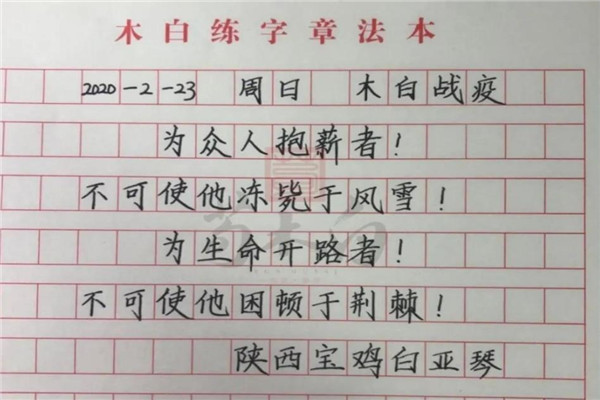 木白练字章法本
2020-2-23 周日 木白战疫
为众人抱薪者！
不可使他冻毙于风雪！
为生命开路者！
不可使他困顿于荆棘！
陕西宝鸡白亚琴